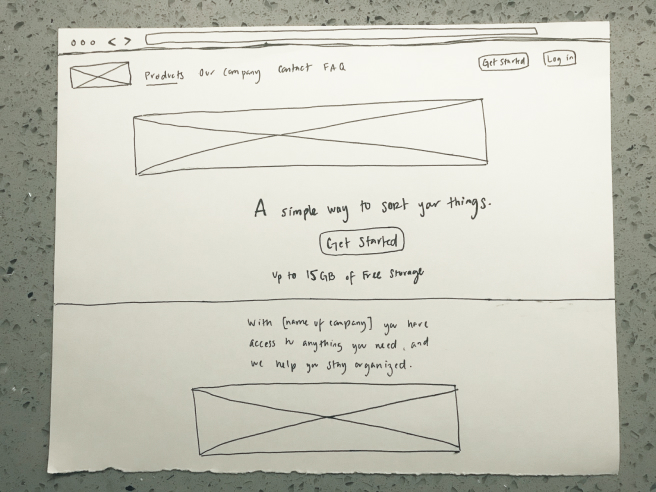 Products Our Company Contact FAQ Get Started Log in
A simple way to sort your things.
Get Started
Up to 15GB of Free Storage
With [name of company] you have
access to anything you need, and
we help you stay organized.